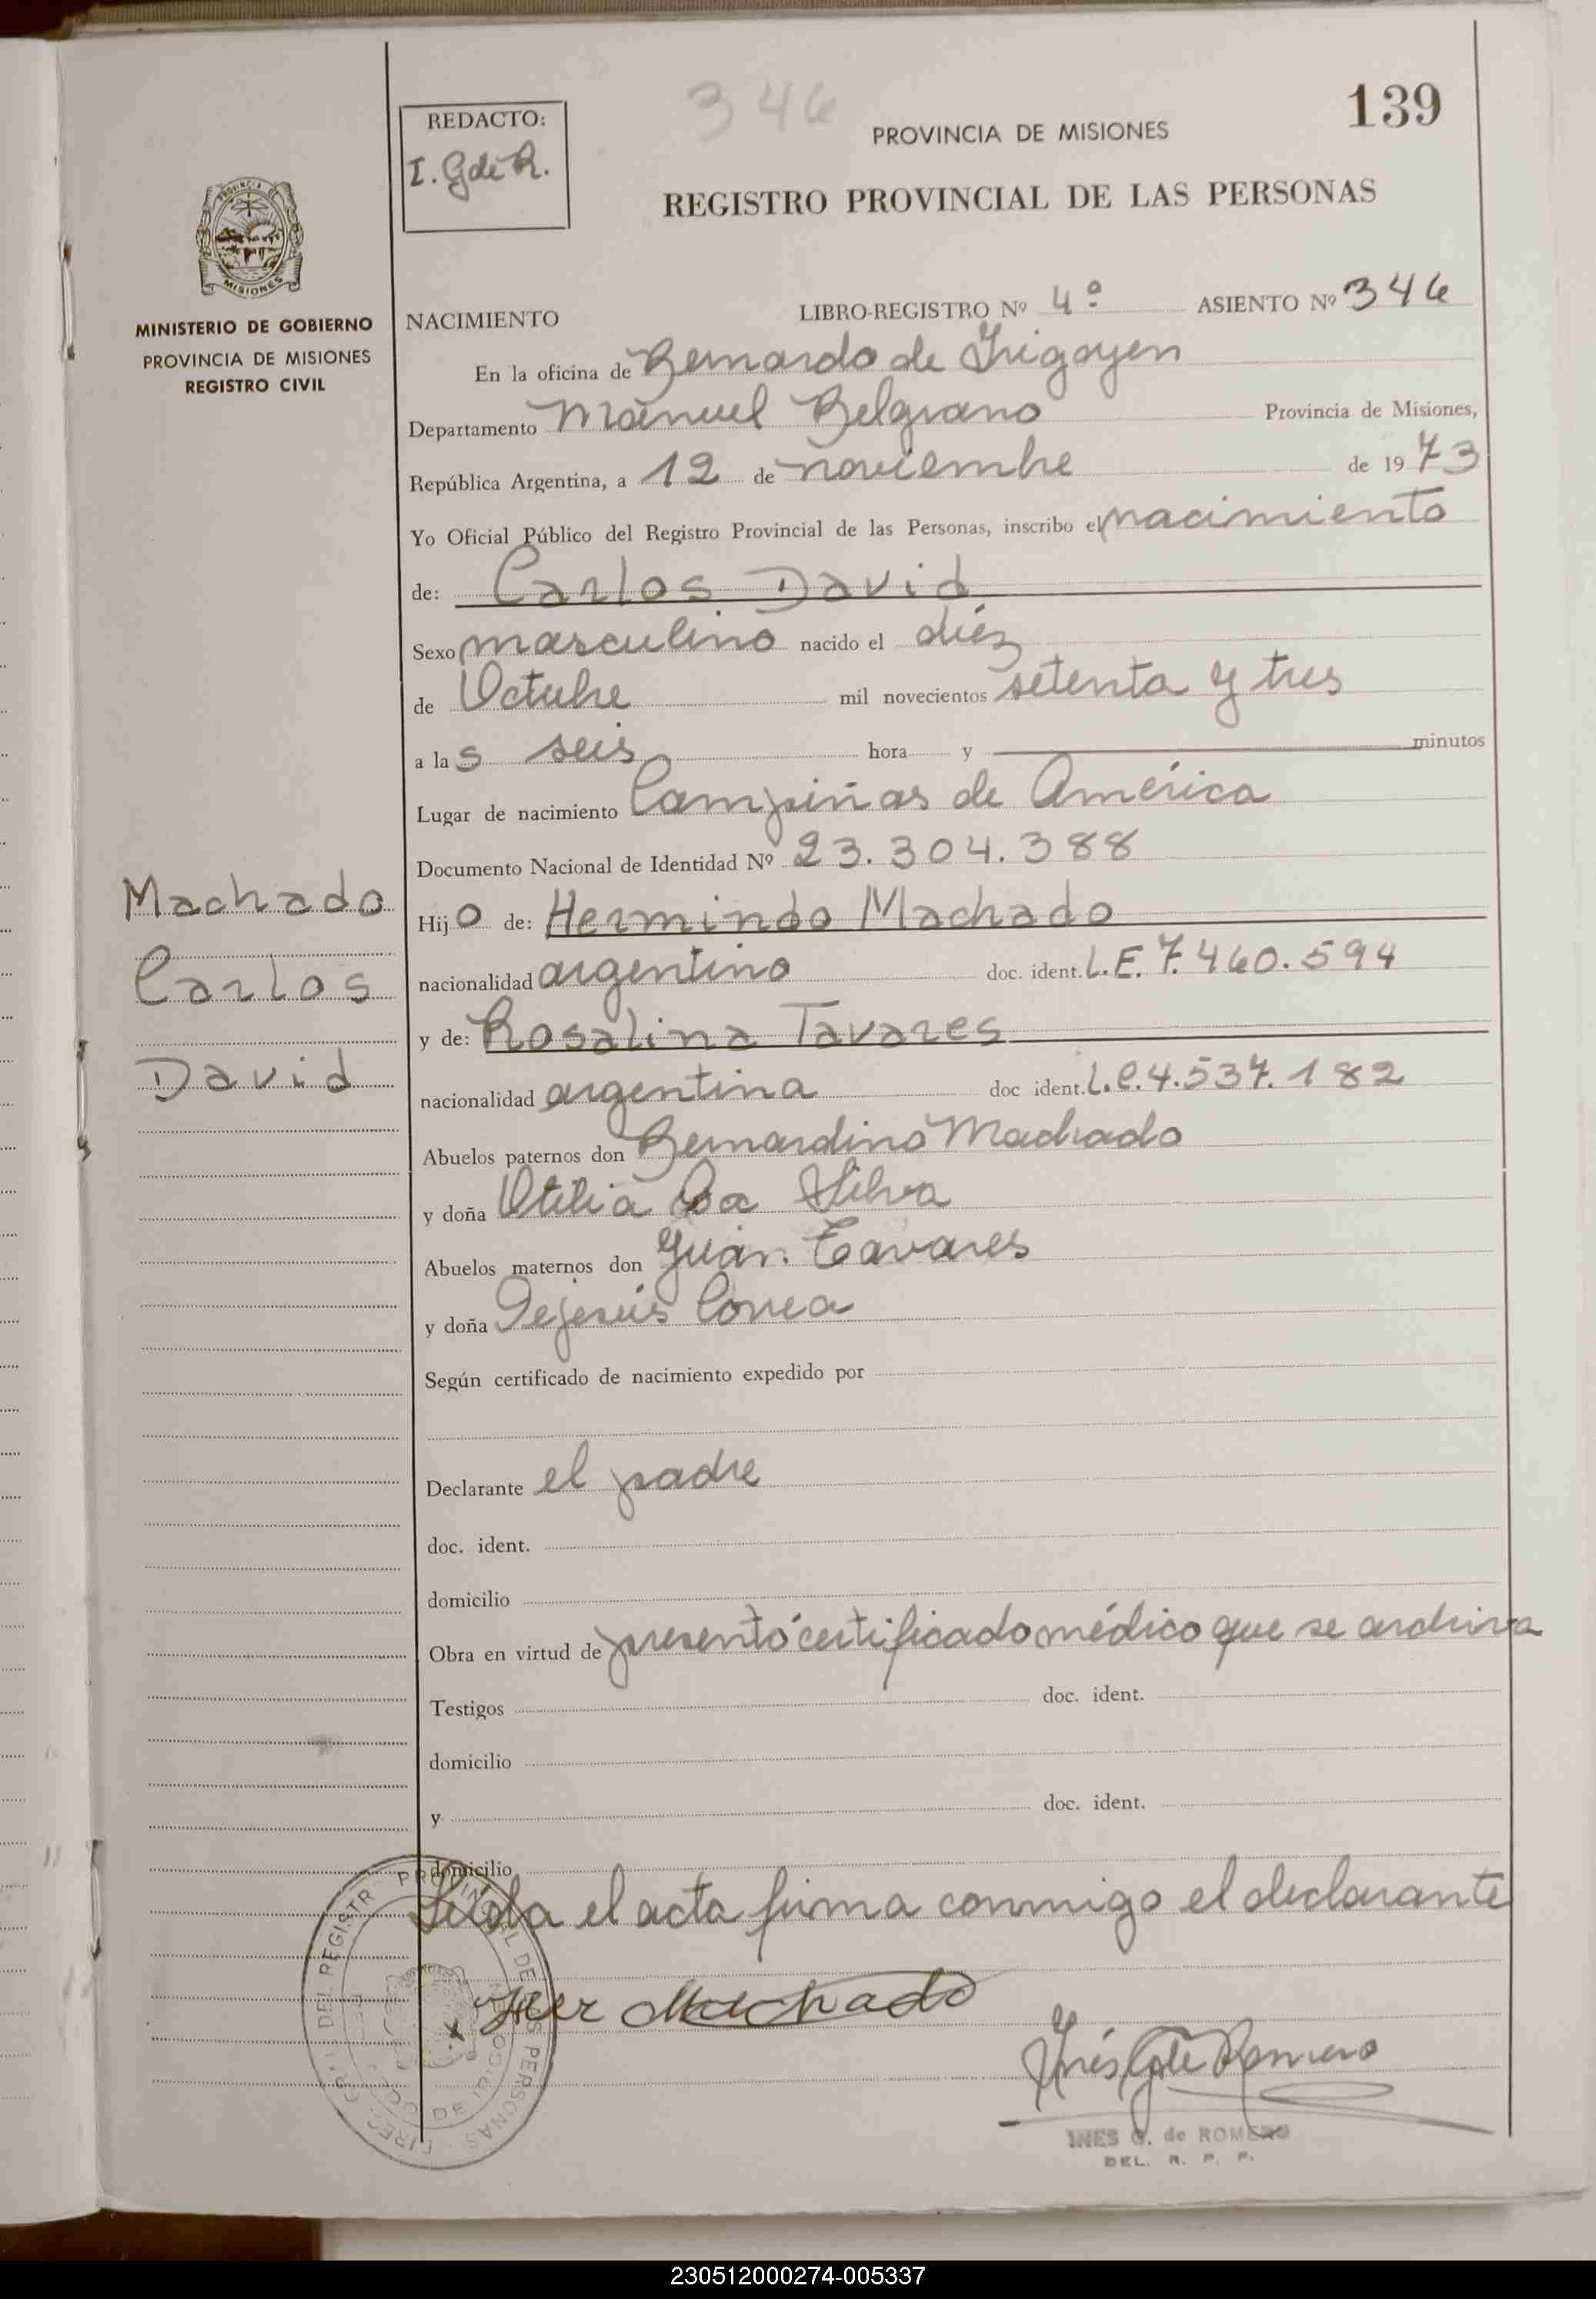 346
139
REDACTO:
I. G de R.
PROVINCIA DE MISIONES
REGISTRO PROVINCIAL DE LAS PERSONAS
MISIONES
MINISTERIO DE GOBIERNO
PROVINCIA DE MISIONES
REGISTRO CIVIL
NACIMIENTO LIBRO-REGISTRO Nº 4º ASIENTO Nº 346
En la oficina de Bernardo de Irigoyen
Departamento Manuel Belgrano Provincia de Misiones,
República Argentina, a 12 de noviembre de 1973
Yo Oficial Público del Registro Provincial de las Personas, inscribo el nacimiento
de: Carlos David
Sexo masculino nacido el diéz
de Octubre mil novecientos setenta y tres
a las seis hora y minutos
Lugar de nacimiento Campiñas de América
Documento Nacional de Identidad Nº 23.304.388
Machado
Carlos
David
Hijo de: Hermindo Machado
nacionalidad argentino doc. ident. L.E. 7.460.594
y de: Rosalina Tavares
nacionalidad argentina doc ident. L.C. 4.537.182
Abuelos paternos don Bernardino Machado
y doña Otilia Da Silva
Abuelos maternos don Juan Tavares
y doña Dejesús Correa
Según certificado de nacimiento expedido por
Declarante el padre
doc. ident.
domicilio
Obra en virtud de presentó certificado médico que se archiva
Testigos doc. ident.
domicilio
y doc. ident.
domicilio
Leída el acta firma conmigo el declarante
x Her Machado
Inés G de Romero
INES G. de ROMERO
DEL. R. P. P.
230512000274-005337